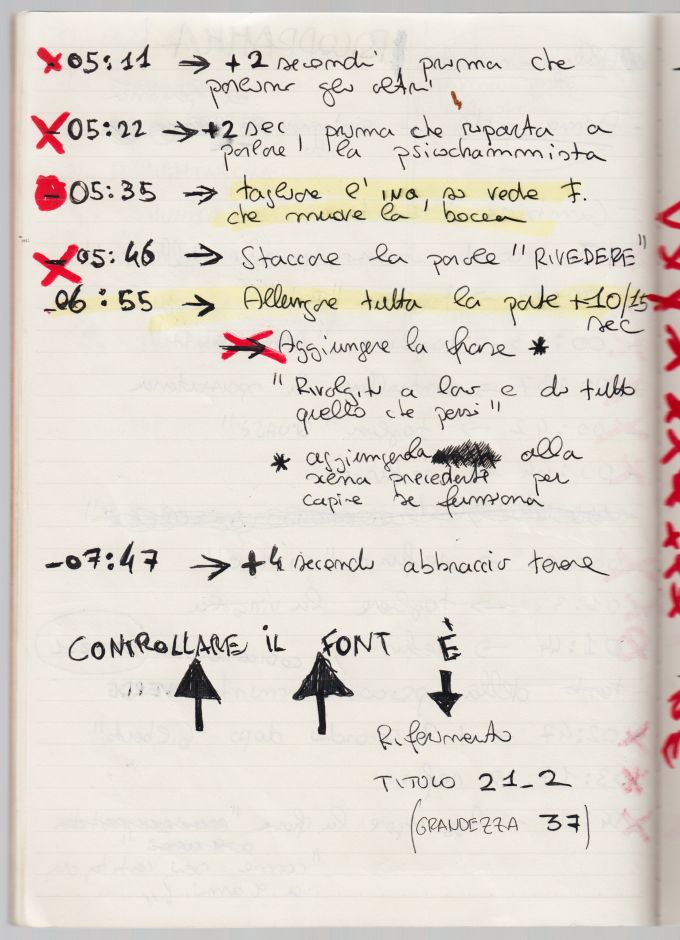 - 05:11 → +2 secondi prima che
parlino gli altri
- 05:22 → +2 sec prima che riparta a
parlare la psicodrammista
- 05:35 → tagliare l'INQ, si vede F.
che muove la bocca
- 05:46 → Staccare la parola "RIVEDERE"
- 06:55 → Allungare tutta la parte +10/15
sec
→ Aggiungere la frase *
"Rivolgiti a loro e di tutto
quello che pensi"
* aggiungerla alla
scena precedente per
capire se funziona
- 07:47 → +4 secondi abbraccio tenere
CONTROLLARE IL FONT È
Riferimento
TITOLO 21_2
(GRANDEZZA 37)